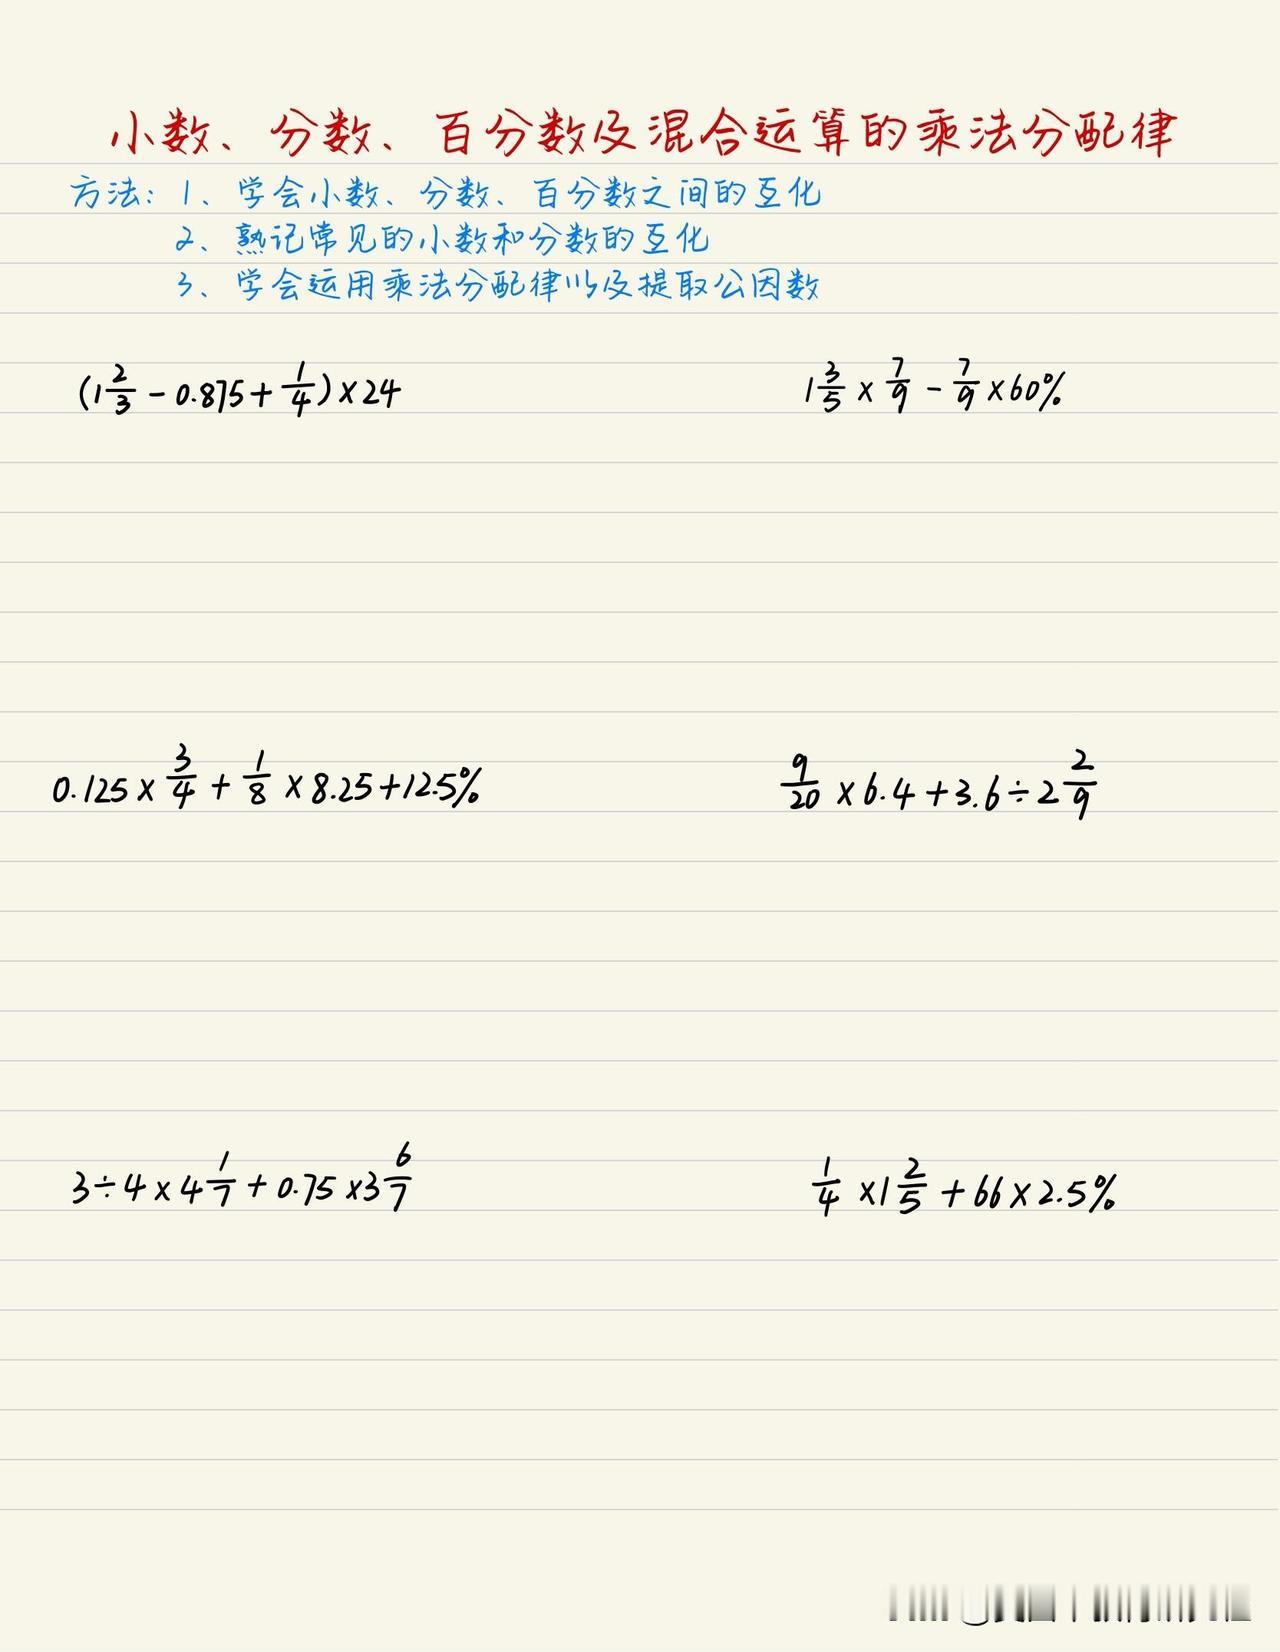 小数、分数、百分数及混合运算的乘法分配律
方法：1、学会小数、分数、百分数之间的互化
2、熟记常见的小数和分数的互化
3、学会运用乘法分配律以及提取公因数
(1 2/3 - 0.875 + 1/4) × 24
1 3/5 × 7/9 - 7/9 × 60%
0.125 × 3/4 + 1/8 × 8.25 + 12.5%
9/20 × 6.4 + 3.6 ÷ 2 2/9
3 ÷ 4 × 4 1/7 + 0.75 × 3 6/7
1/4 × 1 2/5 + 66 × 2.5%